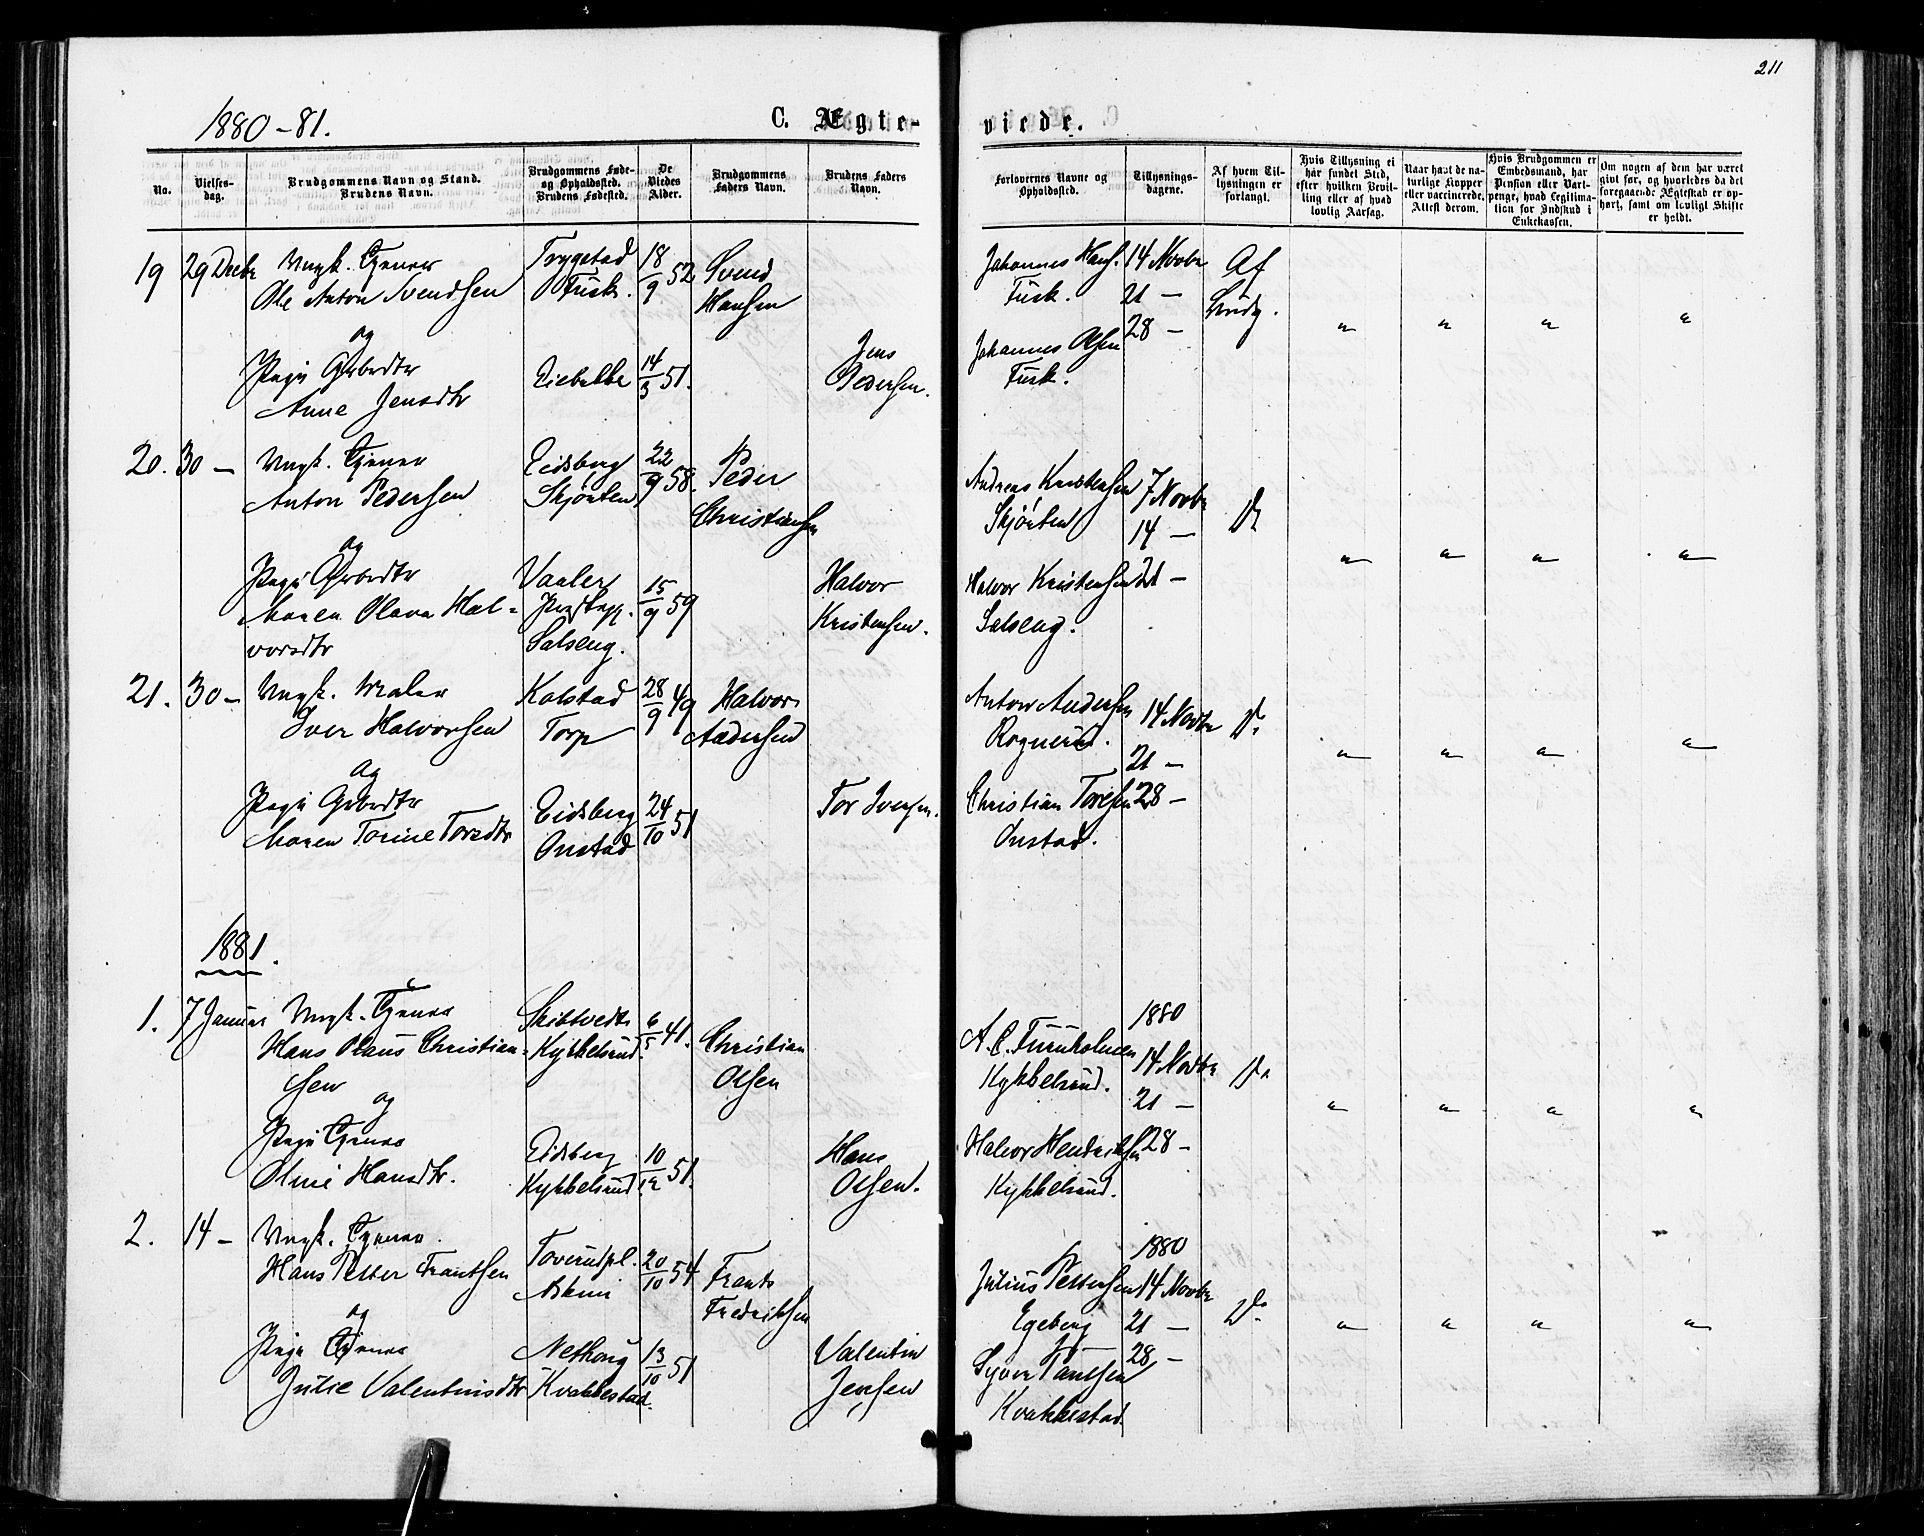 211
1880-81.
C. Ægte-
viede.
No.
Vielses-
dag.
Brudgommens Navn og Stand.
Brudens Navn.
Brudgommens Føde-
og Opholdssted.
Brudens Fødested.
De
Viedes
Alder.
Brudgommens
Faders Navn.
Brudens Faders
Navn.
Forlovernes Navne og
Opholdssted.
Tillysnings-
dagene.
Af hvem Til-
lysningen er
forlangt.
Hvis Tillysning ei
har fundet Sted,
efter hvilken Bevil-
ling eller af hvad
lovlig Aarsag.
Naar havt de na-
turlige Kopper
eller vaccinerede.
Attest derom.
Hvis Brudgommen er
Embedsmand, har
Pension eller Vart-
penge, hvad Legitima-
tion for Indskud i
Enkekassen.
Om nogen af dem har været
givt før, og hvorledes da det
foregaaende Ægteskab er op-
hørt, samt om lovligt Skifte
er holdt.
19 29 Decbr Ungk. Tjener
Ole Anton Svendsen
og
Pige Arbedtr
Anne Jensdtr
Trygstad
Fusk.
18/9 52
Svend
Hansen
14/3 51.
Jens
Pedersen.
Johannes Hans.
Fusk.
Johannes Olsen
Fusk.
14 Novbr
21 —
28 —
Af
Brudg.
20. 30 — Ungk. Tjener
Anton Pedersen
og
Pige Arbedtr
Maren Olava Hal-
vorsdtr
Eidsberg
Skjørten
22/9 58.
Peder
Christiansen
Vaaler
Salseng.
15/9 59
Halvor
Kristensen.
Andreas Kristensen
Skjørten
Halvor Kristensen
Salseng.
7 Novbr
14 —
21 —
Do
21. 30 — Ungk. Maler
Iver Halvorsen
og
Pige Arbedtr
Maren Torine Torsdtr
Kolstad
Torp
28/9 49
Halvor
Andersen
Eidsberg
Onstad
24/10 51
Tor Iversen.
Anton Andersen
Rognerud.
Christian Toresen
Onstad.
14 Novbr
21 —
28 —
Do
1881.
1. 7 Januar Ungk. Tjener
Hans Olaus Christian-
sen
og
Pige Tjener
Oline Hansdtr.
Skibtvedt
Kykkelsrud
6/5 41.
Christian
Olsen
Eidsberg
Kykkelsrud
10/12 51.
Hans
Olsen.
A. C. Furuholmen
Kykkelsrud.
Halvor Hendriksen
Kykkelsrud.
1880
14 Novbr
21 —
28 —
Do
2. 14 — Ungk. Tjener
Hans Petter Frantsen
og
Pige Tjener
Julie Valentinsdtr
Toverudpl.
Askim
20/10 54
Frants
Fredriksen
Kvakkestad.
13/10 51
Valentin
Jensen
Julius Pettersen
Egeberg
Syver Paulsen
Kvakkestad
1880
14 Novbr
21 —
28 —
Do